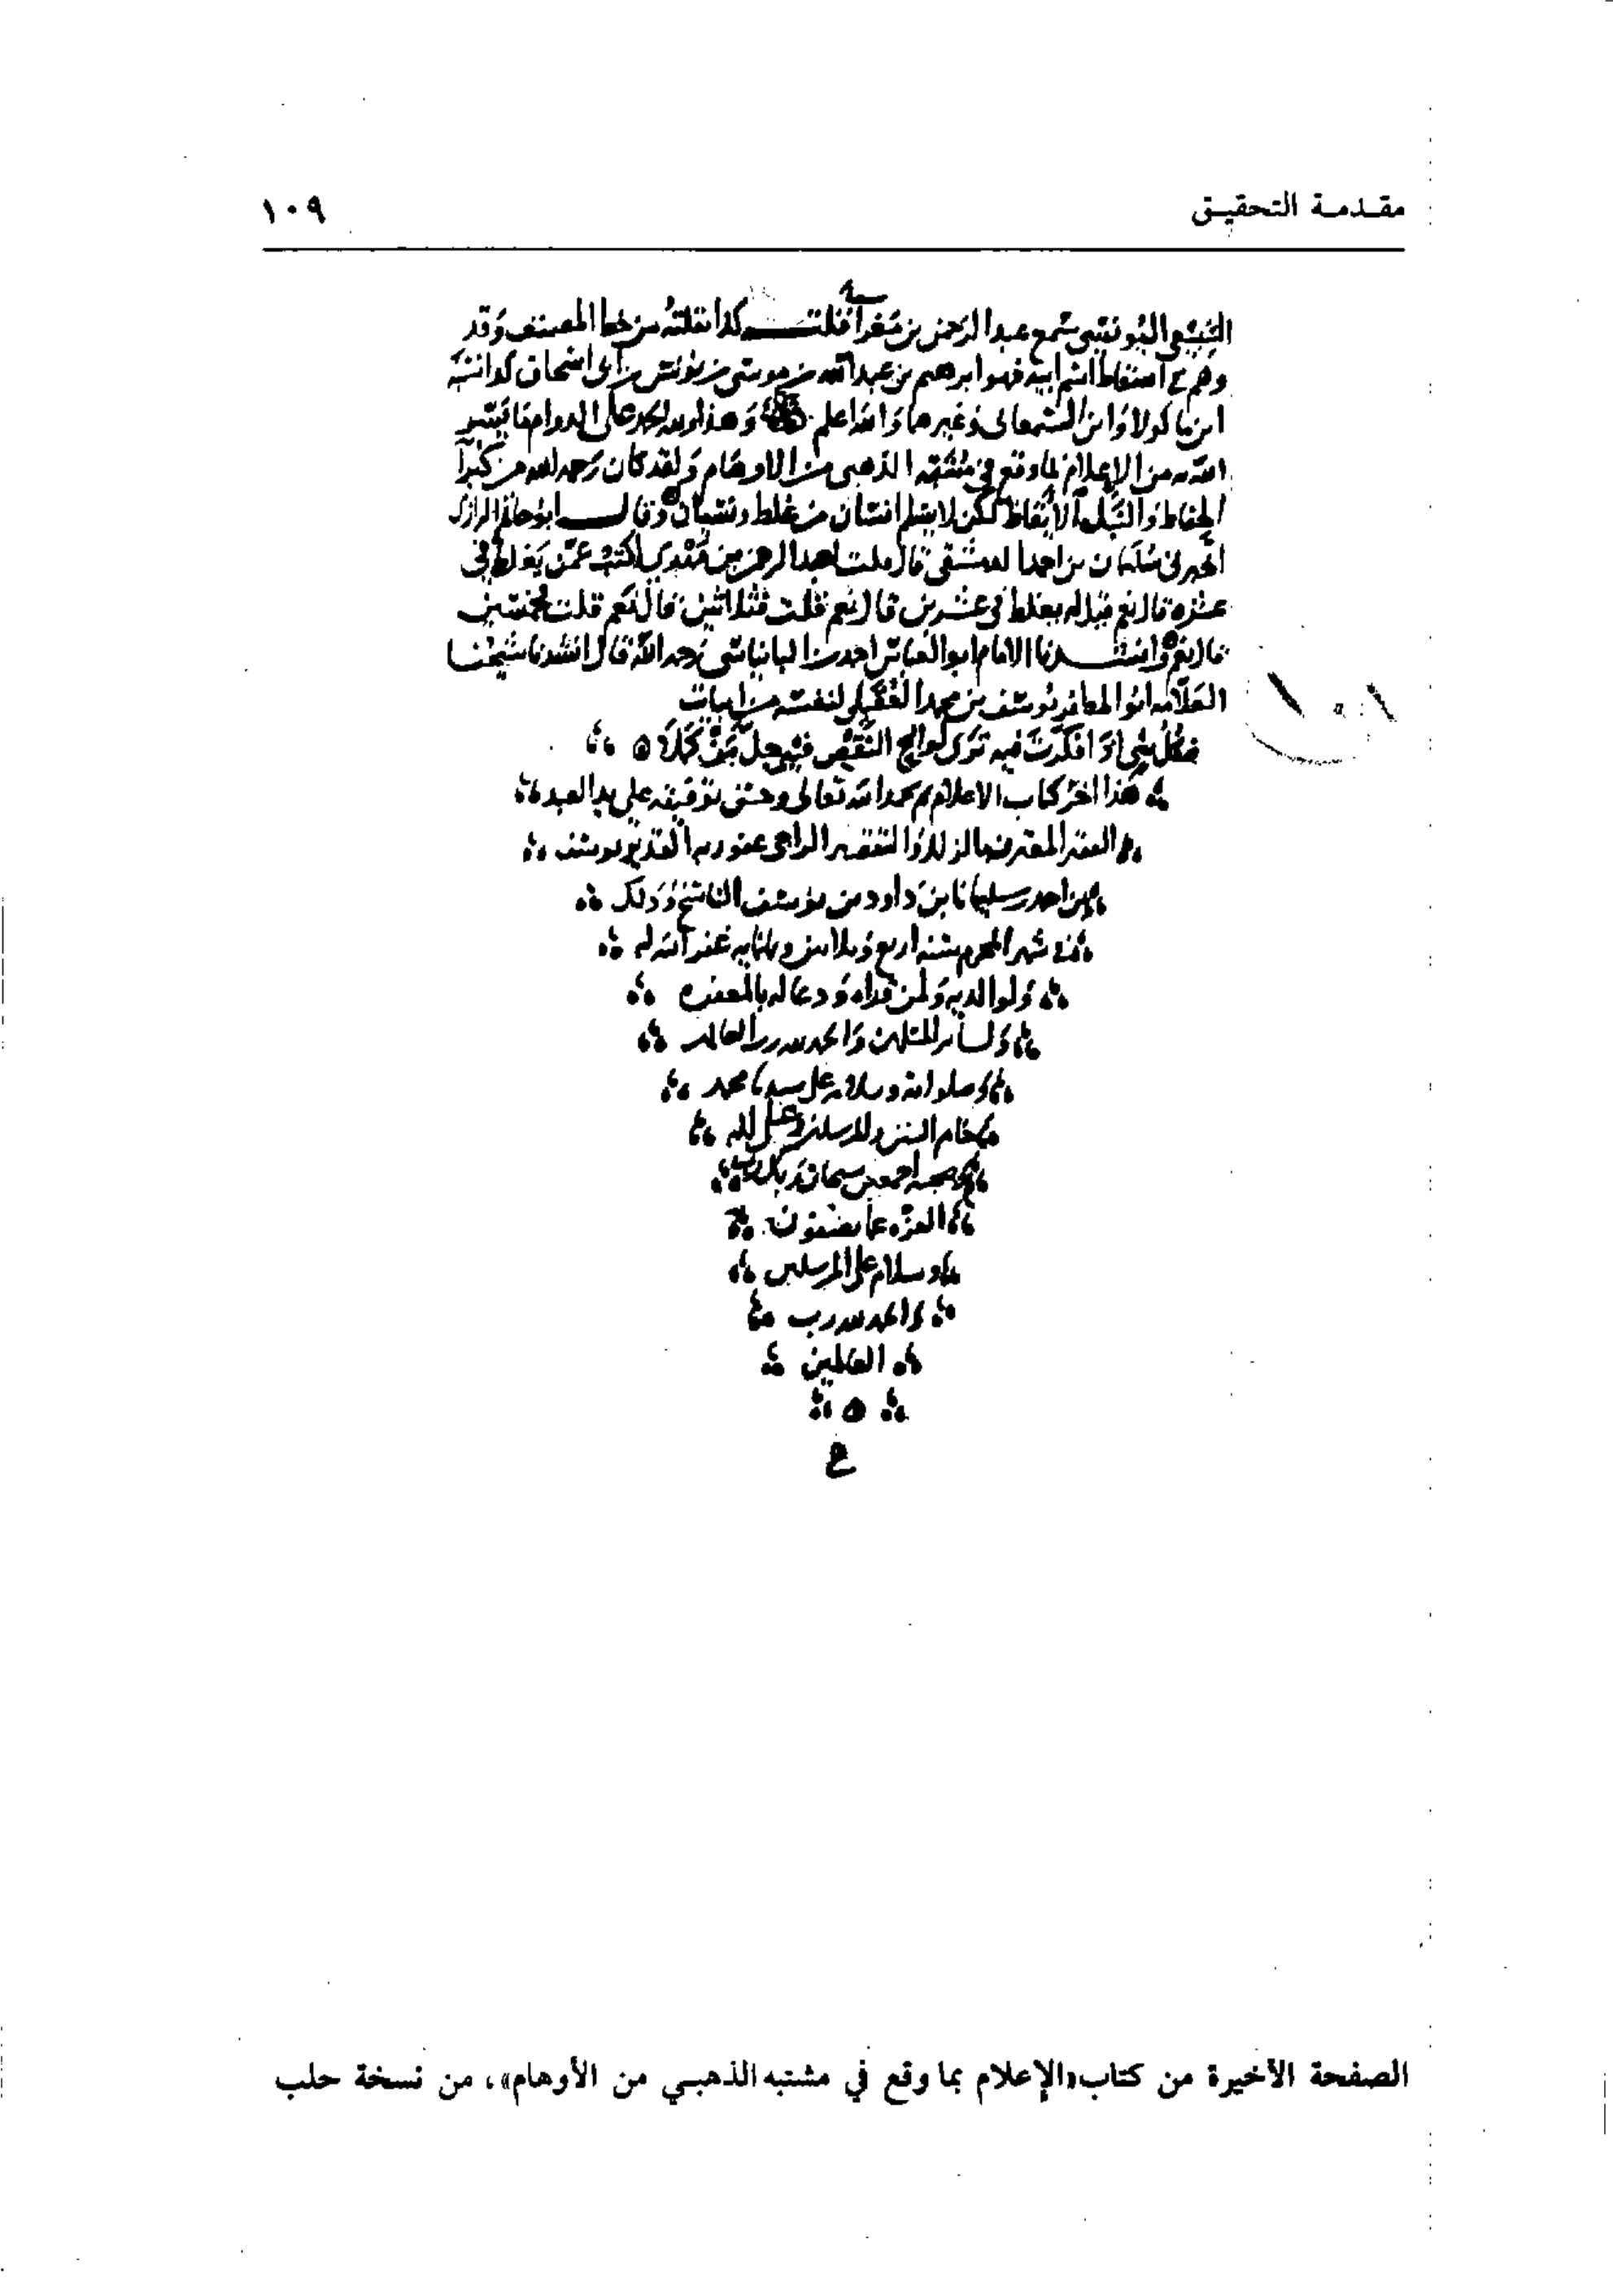 مقدمة التحقيق
١٠٩
اليونسي سمع عبد الرحمن بن مغرا قلت كذا نقلته من خط المصنف وقد
وهم في اسقاط اسم ابيه فهو ابرهيم بن عبد الله بن موسى بن يونس بن ابي اسحاق كذا نسبه
ابن ماكولا وابن السمعاني وغيرهما والله اعلم وهذا ولله الحمد على الدوام ما يسر
الله به من الاعلام لما وقع في مشتبه الذهبي من الاوهام ولقد كان رحمه الله من كبرآ
الحفاظ والنبلآ الايقاظ لكن لا يسلم انسان من غلط ونسيان وقال ابو حاتم الرازي
اخبرني سليمان بن احمد الدمشقي قال قلت لعبد الرحمن بن مهدي اكتب عمن يغلط في
عشرة قال نعم قيل له يغلط في عشرين قال نعم قلت فثلاثين قال نعم قلت فخمسين
قال نعم وانشدنا الامام ابو العباس احمد البانياسي رحمه الله قال انشدنا شيخنا
العلامه ابو المظفر يوسف بن محمد لنفسه من ابيات
فكل شي اذا فكرت فيه ترى لوايح النقص فيه جل من كملا ه
هذا اخر كتاب الاعلام بحمد الله تعالى وحسن توفيقه على يد العبد
الفقير المعترف بالزلل والتقصير الراجي عفو ربه القدير يوسف
بن احمد بن سليمان بن داود بن يوسف الناسخ وذلك
في شهر المحرم سنة اربع وثلاثين وثمانمايه غفر الله له
ولوالديه ولمن قراه ودعا له بالمغفره
ولسائر المسلمين والحمد لله رب العالمين
وصلوات الله وسلامه على سيدنا محمد
خاتم النبيين والمرسلين وعلى اله
وصحبه اجمعين سبحان ربك رب
العزه عما يصفون
وسلام على المرسلين
والحمد لله رب
العالمين
ه
الصفحة الأخيرة من كتاب «الإعلام بما وقع في مشتبه الذهبي من الأوهام»، من نسخة حلب